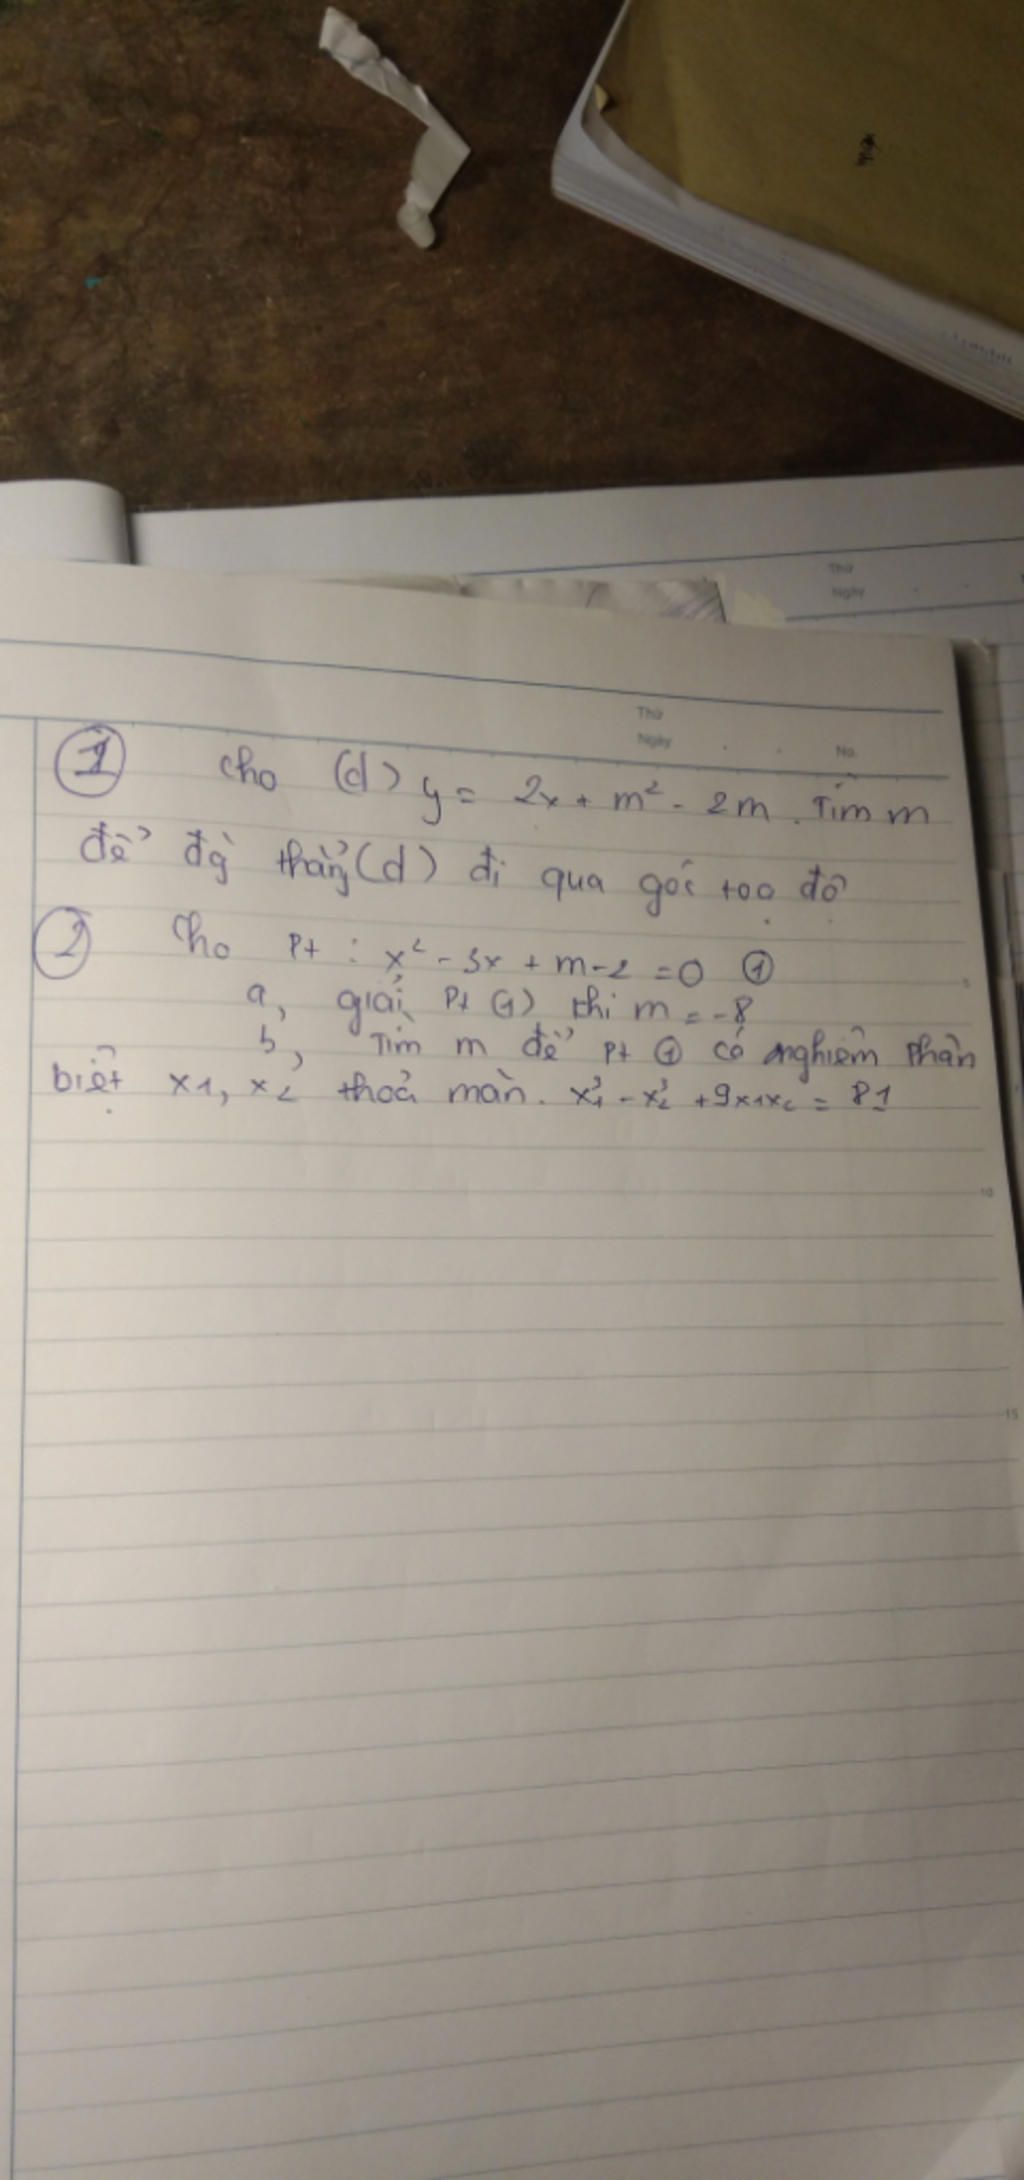 Thứ
Ngày
Thứ
Ngày
No.
① cho (d) y = 2x + m² - 2m. Tìm m
để đg thẳng (d) đi qua gốc toạ độ
② Cho pt : x² - 3x + m - 2 = 0 ①
a, giải pt (1) khi m = -8
b, Tìm m để pt ① có nghiệm phân
biệt x1, x2 thoả mãn. x₁³ - x₂³ + 9x1x2 = 81
5
10
15